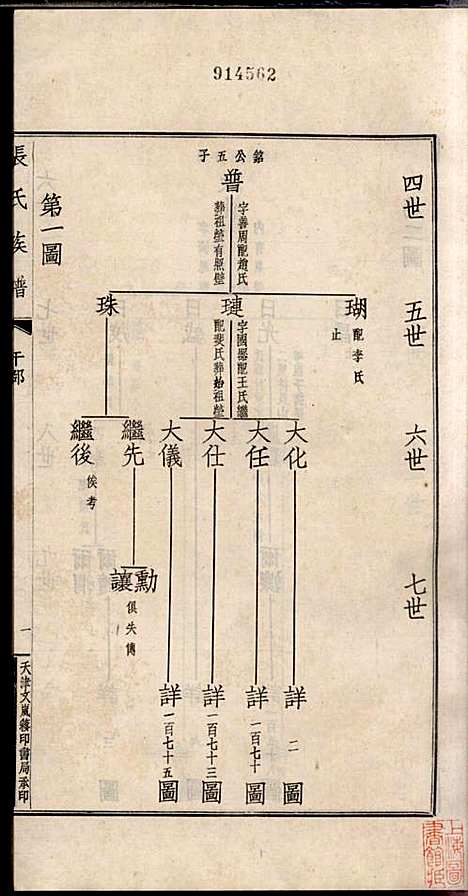 914562
四世
五世
六世
七世
銘公五子
普
字善周配趙氏
葬祖塋有照壁
瑚
配李氏
止
璉
字國器配王氏繼
配裴氏葬始祖塋
珠
大化
大任
大仕
大儀
繼先
繼後
俟考
勳
讓
俱失傳
詳二圖
詳一百七十圖
詳一百七十三圖
詳一百七十五圖
第一圖
張氏族譜
一
天津文嵐簃印書局承印
上海圖
書館藏